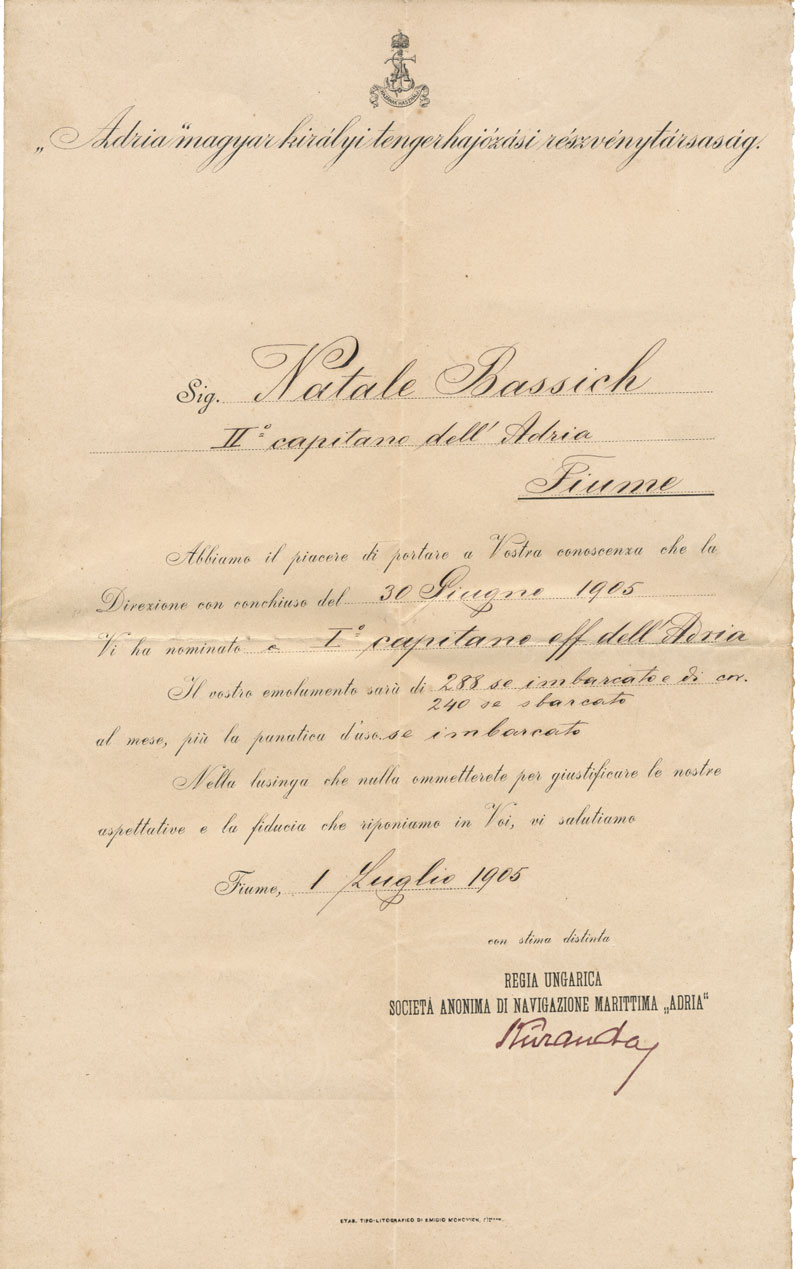 „Adria" magyar királyi tengerhajózási részvénytársaság.
Sig. Natale Bassich
IIº capitano dell' Adria
Fiume
Abbiamo il piacere di portare a Vostra conoscenza che la
Direzione con conchiuso del 30 Giugno 1905
Vi ha nominato a Iº capitano eff dell' Adria
Il vostro emolumento sarà di 288 se imbarcato e di cor.
240 se sbarcato
al mese, più la panatica d'uso. se imbarcato
Nella lusinga che nulla ommetterete per giustificare le nostre
aspettative e la fiducia che riponiamo in Voi, vi salutiamo
Fiume, 1 Luglio 1905
con stima distinta
REGIA UNGARICA
SOCIETÀ ANONIMA DI NAVIGAZIONE MARITTIMA „ADRIA"
Kuranda
STAB. TIPO-LITOGRAFICO DI EMIDIO MOHOVICH, FIUME.